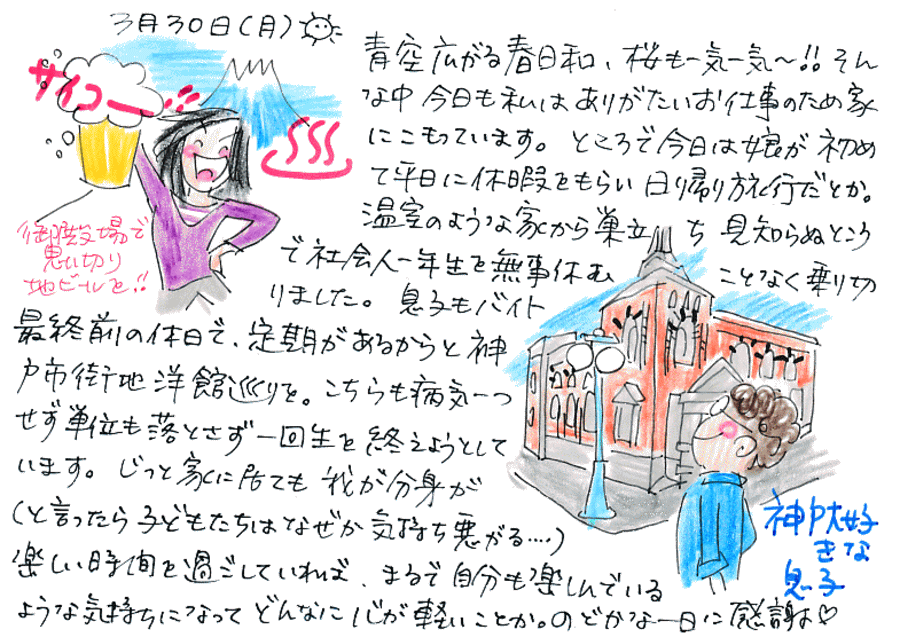 3月30日(月)
サイコー!!
御殿場で
思い切り
地ビールを!!
青空広がる春日和、桜も一気一気〜!! そん
な中 今日も私は ありがたいお仕事のため家
にこもっています。ところで今日は娘が 初め
て平日に休暇をもらい 日帰り旅行だとか。
温室のような家から巣立ち 見知らぬところ
で社会人一年生を無事休むことなく乗り切
りました。 息子もバイト
最終前の休日で、定期があるからと神
戸市街地洋館巡りを。こちらも病気一つ
せず単位も落とさず一回生を終えようとして
います。じっと家に居ても 我が分身が
(と言ったら子どもたちはなぜか気持ち悪がる....)
楽しい時間を過ごしていれば、まるで自分も楽しんでいる
ような気持ちになって どんなに心が軽いことか。のどかな一日に感謝♡
神戸大好
きな
息子